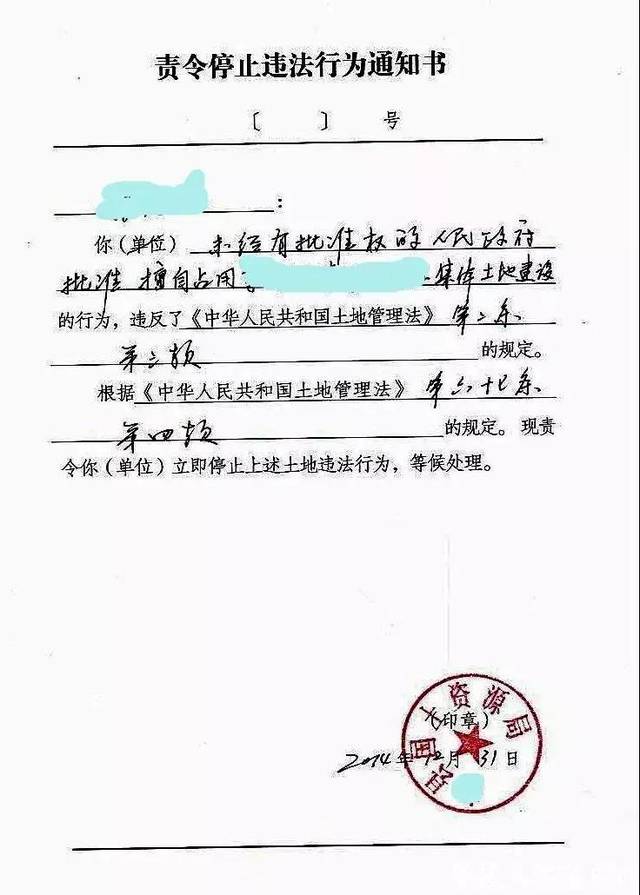 责令停止违法行为通知书
〔 〕 号
:
你(单位) 未经有批准权的人民政府
批准 擅自占用 集体土地建设
的行为，违反了《中华人民共和国土地管理法》 第二条
第三项 的规定。
根据《中华人民共和国土地管理法》 第六十七条
第四项 的规定。现责
令你(单位)立即停止上述土地违法行为，等候处理。
国土资源局
(印章)
2014年12月31日